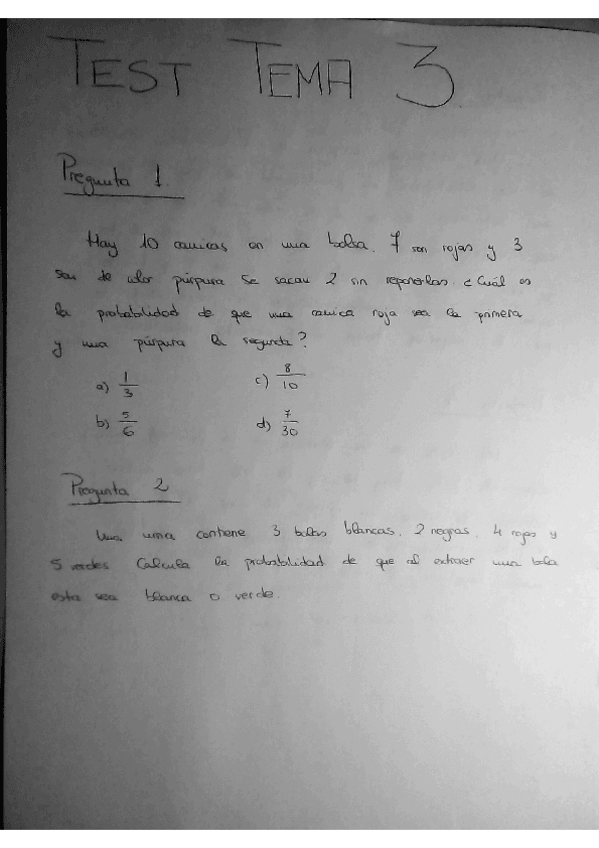 TEST TEMA 3.
Pregunta 1.
Hay 10 canicas en una bolsa. 7 son rojas y 3
son de color púrpura. Se sacan 2 sin reponerlas. ¿Cuál es
la probabilidad de que una canica roja sea la primera
y una púrpura la segunda?
a) 1/3 c) 8/10
b) 5/6 d) 7/30
Pregunta 2
Una urna contiene 3 bolas blancas, 2 negras, 4 rojas y
5 verdes. Calcula la probabilidad de que al extraer una bola
esta sea blanca o verde.